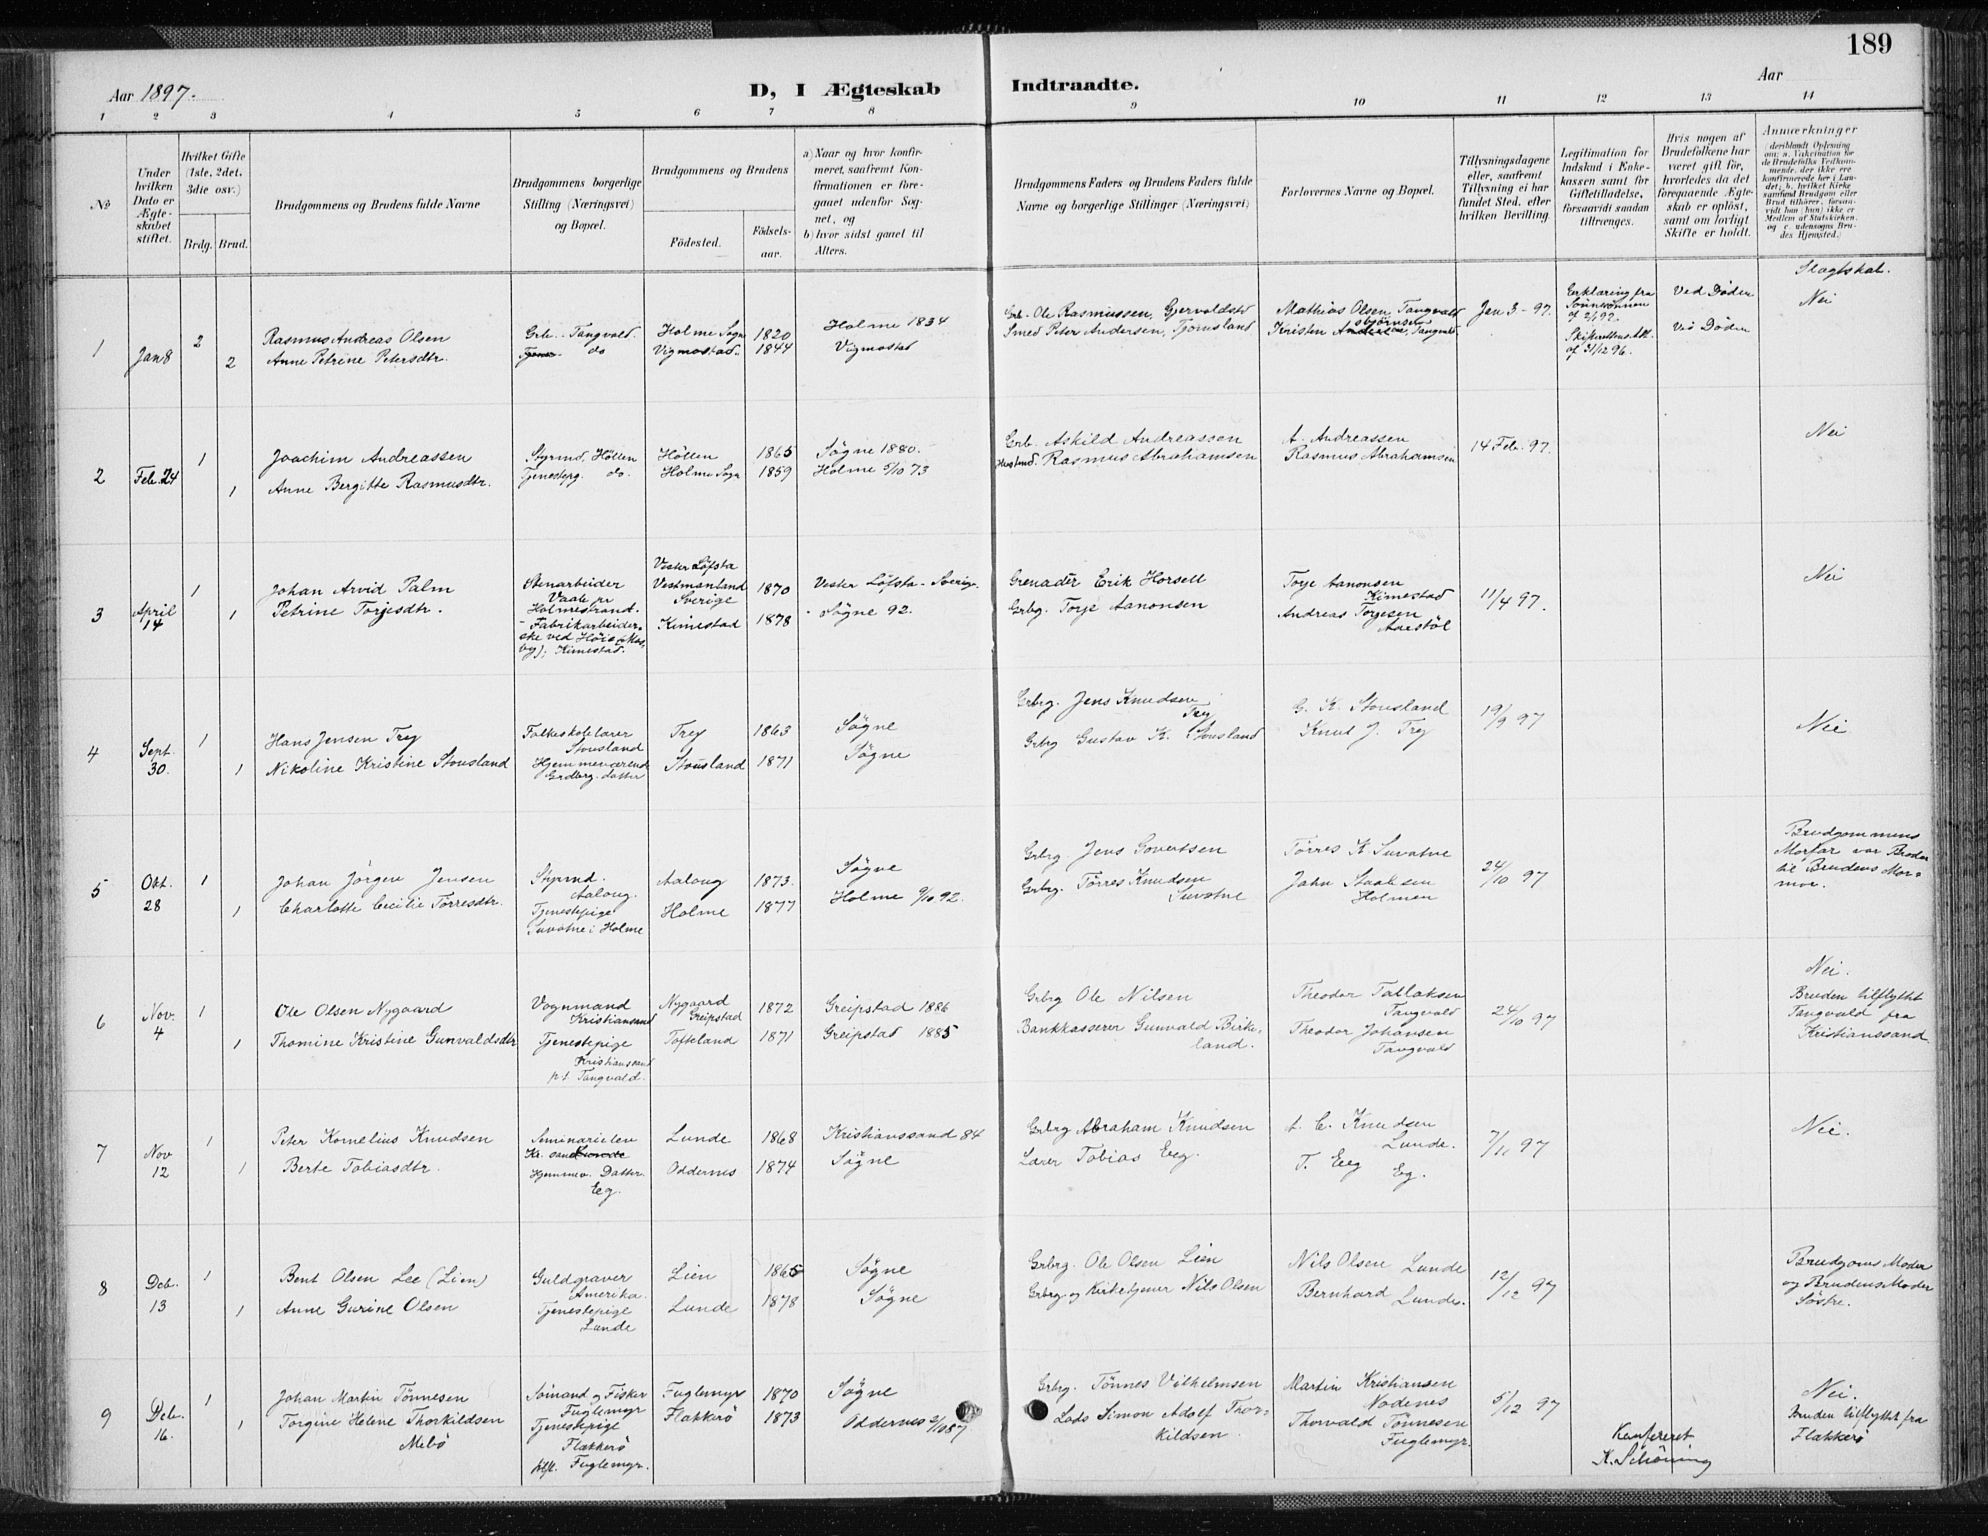 189
Aar 1897.
D, I Ægteskab Indtraadte.
Aar
1 2 3 4 5 6 7 8 9 10 11 12 13 14
No.
Under hvilken Dato er Ægteskabet stiftet.
Hvilket Gifte (1ste, 2det, 3die osv.)
Brdg. Brud.
Brudgommens og Brudens fulde Navne
Brudgommens borgerlige Stilling (Næringsvei) og Bopæl.
Brudgommens og Brudens
Fødested. Fødselsaar.
a) Naar og hvor konfirmeret, saafremt Konfirmationen er foregaaet udenfor Sognet, og
b) hvor sidst gaaet til Alters.
Brudgommens Faders og Brudens Faders fulde Navne og borgerlige Stillinger (Næringsvei)
Forlovernes Navne og Bopæl.
Tillysningsdagene eller, saafremt Tillysning ei har fundet Sted, efter hvilken Bevilling.
Legitimation for Indskud i Enkekassen samt for Giftetilladelse, forsaavidt saadan tiltrænges.
Hvis nogen af Brudefolkene har været gift før, hvorledes da det foregaaende Ægteskab er opløst, samt om lovligt Skifte er holdt.
Anmærkninger (deriblandt Oplysning om: a. Vakcination for de Brudefolks Vedkommende, der ikke ere konfirmerede her i Landet; b. hvilket Kirkesamfund Brudgom eller Brud tilhører, forsaavidt han (hun) ikke er Medlem af Statskirken, og c. udensogns Brudes Hjemsted.)
Slægtskab.
1 Jan 8 2 Rasmus Andreas Olsen Grb. Tangvald. Holme Sogn 1820 Holme 1834 Grb. Ole Rasmussen, Gjervoldstd Mathias Olsen Tangvald Jan 3 - 97. Erklæring fra af 2/1 92. Ved Døden Nei
2 Anne Petrine Petersdtr. do Vigmostad. 1844 Vigmostad Smed Peter Andersen, Tjomsland Kristen Asbjørnsen, Tangvald Skifterettens Att. af 31/12 96. Ved Døden
2 Feb. 24 1 Joachim Andreassen Styrmd. Höllen Höllen 1865 Søgne 1880. Grb. Askild Andreassen A. Andreassen 14 Feb. 97. Nei
1 Anne Bergitte Rasmusdtr. Tjenestepg. do. Holme Sogn 1859 Holme 5/10 73 Husmd. Rasmus Abrahamsen Rasmus Abrahamsen
3 April 14 1 Johan Arvid Palm Stenarbeider Vaale pr Holmestrand. Vester Löfsta Vestmanland Sverige 1870 Vester Löfsta - Sverige. Grenadér Erik Horsell Torje Aanonsen Kimestad 11/4 97. Nei
1 Petrine Torjesdtr. - Fabrikarbeiderske ved Höie (Mosby); Kimestad. Kimestad 1878 Søgne 92. Grbg. Torje Aanonsen Andreas Torjesen
4 Sept. 30. 1 Hans Jensen Trey Folkeskolelærer Stousland Trey 1863 Søgne Grbrg. Jens Knudsen Trey G. K. Stousland 19/9 97 Nei
1 Nikoline Kristine Stousland Hjemmeværende Grdbrg. datter Stousland 1871 Søgne Grbrg Gustav K. Stousland Knut J. Trey
5 Okt. 28 1 Johan Jörgen Jensen Styrmd. Aaloug. Aaloug 1873. Søgne Grbrg. Jens Govertsen Törres K. Suvatne 24/10 97 Brudgommens Morfar var Broder til Brudens Mormor.
1 Charlotte Cecilie Törresdtr. Tjenestepige Suvatne i Holme Holme 1877 Holme 9/10 92. Grbrg. Törres Knudsen Suvatne Jahn Staalesen Holmen
6 Nov. 4 1 Ole Olsen Nygaard Vognmand Kristiansand Nygaard Greipstad 1872 Greipstad 1886 Grbrg Ole Nilsen Theodor Tallaksen Tangvald 24/10 97 Nei.
1 Thomine Kristine Gunvaldsdtr Tjenestepige Kristianssand p.t. Tangvald. Tofteland 1871 Greipstad 1885 Bankkasserer Gunvald Birkeland. Theodor Johansen Tangvald Bruden tilflyttet Tangvald fra Kristianssand
7 Nov 12 1 Peter Kornelius Knudsen Seminarielev Kr. sand Lunde 1868 Kristianssand 84 Grbrg Abraham Knudsen A. C. Knudsen Lunde. 7/11 97 Nei.
1 Berte Tobiasdtr. Hjemmev. Datter Eeg. Oddernes 1874 Søgne Lærer Tobias Eeg. T. Eeg Eg.
8 Deb. 13 1 Bent Olsen Lee (Lien) Guldgraver Amerika. Lien 1865 Søgne Grbrg. Ole Olsen Lien Nils Olsen Lunde 12/12 97 Brudgoms Moder og Brudens Moder Søstre.
1 Anne Gurine Olsen Tjenestepige Lunde Lunde 1878 Søgne Grbrg og Kirketjener Nils Olsen Bernhard Lunde.
9 Deb. 16. 1 Johan Martin Tönnesen Sömand og Fisker Fuglemyr Fuglemyr 1870 Søgne Grbrg. Tönnes Vilhelmsen Martin Kristiansen Nodenes 5/12 97 Nei.
1 Torgine Helene Thorkildsen Mebö Tjenestepige Flækkerö tilfl. Fuglemyr. Flækkerö 1873 Oddernes 2/10 87 Lods Simon Adolf Thorkildsen. Thorvald Tönnesen Fuglemyr. Bruden tilflyttet fra Flækkerö
Konfereret
K. Schöning